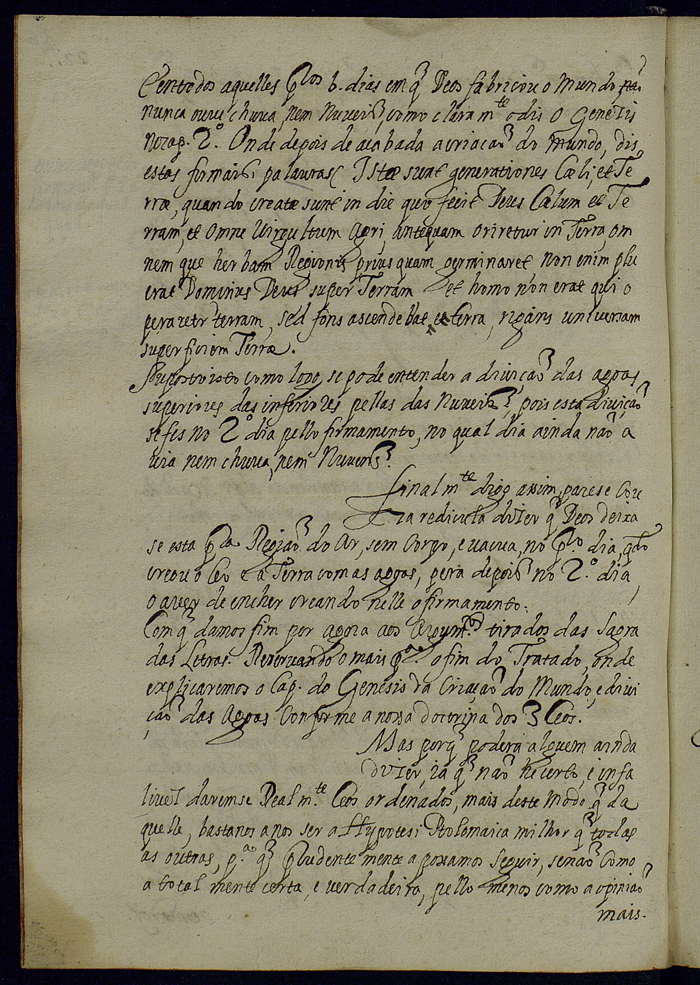 E em todos aquelles pros 6. dias em q̃ Deos fabricou o Mundo
nunca ouve chuva, nem Nuveis, como claramte o dis o Genesis
no cap. 2º. Onde depois de acabada a criacaõ do mundo, dis
estas formais palauras( Istæ sunt generationes Cæli, et Te
rræ, quando creatæ sunt in die quo fecit Deus Cælum et Te
rram, et omne Virgultum Agri, antequam oriretur in Terra, om
nem que herbam Regionis priusquam germinaret non enim plu
erat Dominus Deus super Terram et homo non erat qui o
peraretr terram, sed fons ascendebat e terra, rigans universam
superficiem Terræ.
Suposto isto como logo se pode entender a diviçaõ das agoas
superiores das inferiores pellas das Nuveis, pois esta diviçaõ
se fes no 2º dia pello firmamento, no qual dia ainda naõ a
via nem chuva, nem Nuvens.
Finalmte digo assim, parese Cou
za redicula dizer q̃ Deos deixa
se esta pda Regiaõ do Ar, sem Corpo, e vacua, no pro dia, qdo
creou o Ceo e a Terra com as agoas, pera depois no 2º. dia,
o aver de encher creando nelle o firmamento.
Com q̃ damos fim por agora aos Argumtos tirados das Sagra
das Letras. Reservando o mais pa o fim do Tratado, onde
explicaremos o Cap. do Genesis da Criaçaõ do Mundo, e divi
çaõ das Agoas Conforme a nossa doctrina dos 3 Ceos.
Mas porq̃ podera alguem ainda
dizer, ia q̃ naõ he certo, e infa
livel daremse Realmte Ceos ordenados, mais deste Modo q̃ da
quelle, bastanos a nos ser a Hypotesi Ptolomaica milhor q̃ todas
as outras, pa q̃ prudentemente a possamos seguir, senaõ como
a total mente certa, e verdadeira, pello menos como a opiniaõ
mais.